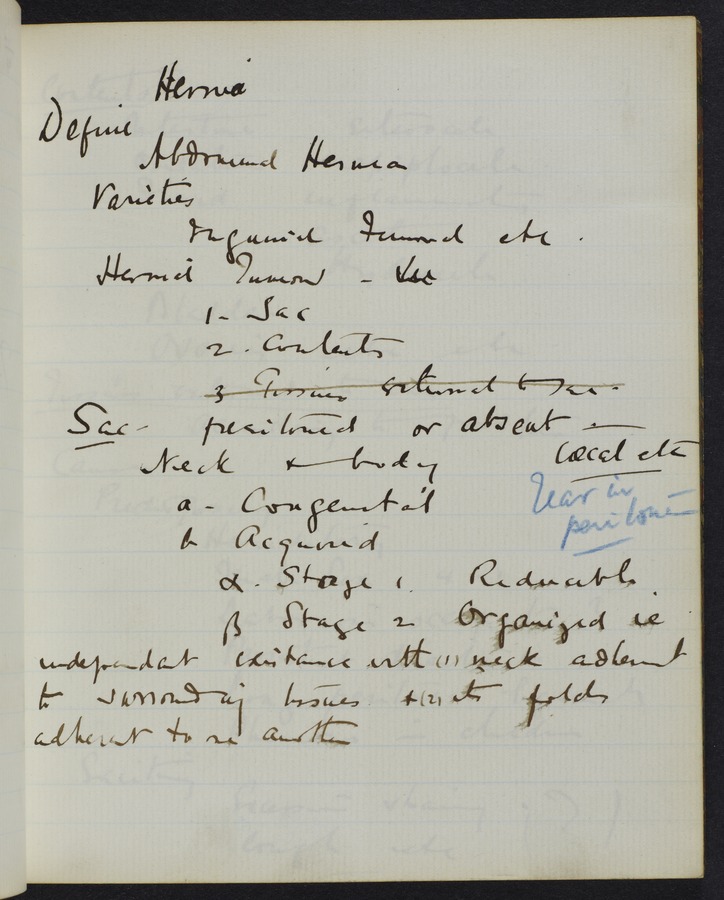 Hernia
Define
Abdominal Hernia
Varieties
Inguinal Femoral etc.
Hernial Tumour -
1- Sac
2. Contents
3 Tissues external to sac -
Sac - peritoneal or absent -
Neck & body Cæcal etc
Tear in
a - Congenital
peritoneum
b Acquired
α. Stage 1. Reducible
β Stage 2 Organized ie
independant existance with (1) neck adherent
to surrounding tissues & (2) its folds
adherent to one another